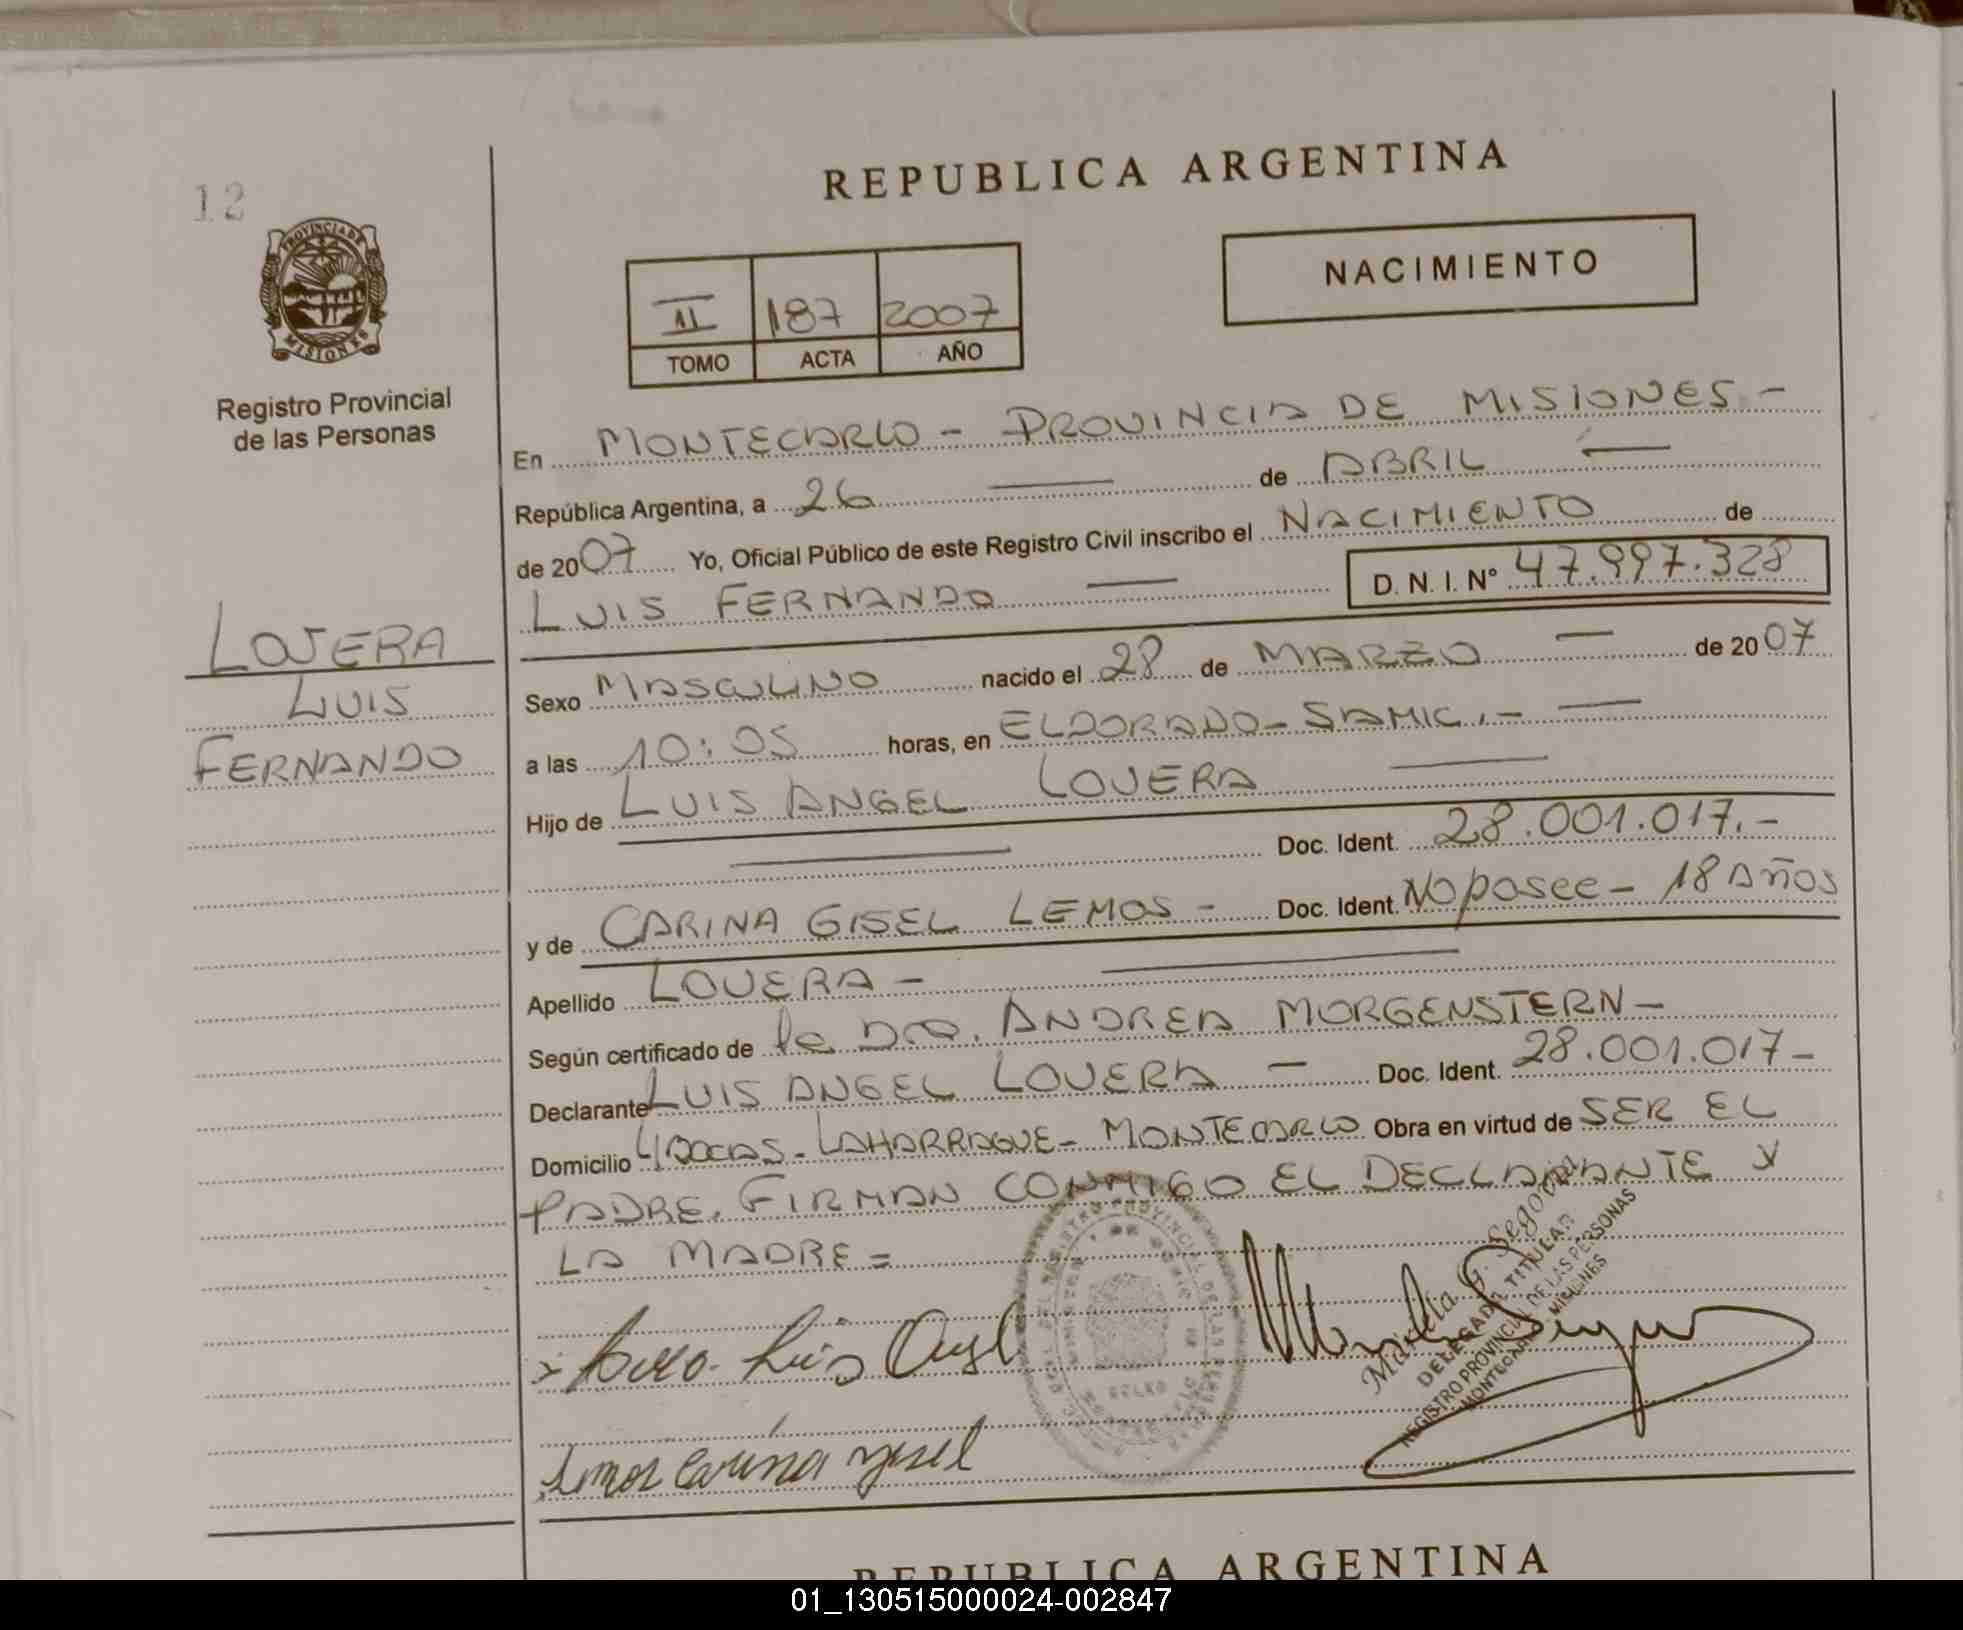 12
PROVINCIA DE
MISIONES
Registro Provincial
de las Personas
LOVERA
LUIS
FERNANDO
REPUBLICA ARGENTINA
NACIMIENTO
II 187 2007
TOMO ACTA AÑO
En MONTECARLO - PROVINCIA DE MISIONES -
República Argentina, a 26 — de ABRIL —
de 2007 Yo, Oficial Público de este Registro Civil inscribo el NACIMIENTO de
LUIS FERNANDO — D. N. I. N° 47.997.328
Sexo MASCULINO nacido el 28 de MARZO — de 2007
a las 10:05 horas, en ELDORADO - SAMIC. - —
Hijo de LUIS ANGEL LOVERA —
— Doc. Ident. 28.001.017.-
y de CARINA GISEL LEMOS - Doc. Ident. No posee - 18 AÑOS
Apellido LOVERA - —
Según certificado de la DRA. ANDREA MORGENSTERN -
Declarante LUIS ANGEL LOVERA — Doc. Ident. 28.001.017 -
Domicilio LAHARRAGUE - MONTECARLO Obra en virtud de SER EL
PADRE. FIRMAN CONMIGO EL DECLARANTE Y
LA MADRE =
Luis Angel
Lemos Carina Gisel
Mariela G.
DELEGADA TITULAR
REGISTRO PROVINCIAL DE LAS PERSONAS
MONTECARLO MISIONES
REPUBLICA ARGENTINA
01_130515000024-002847